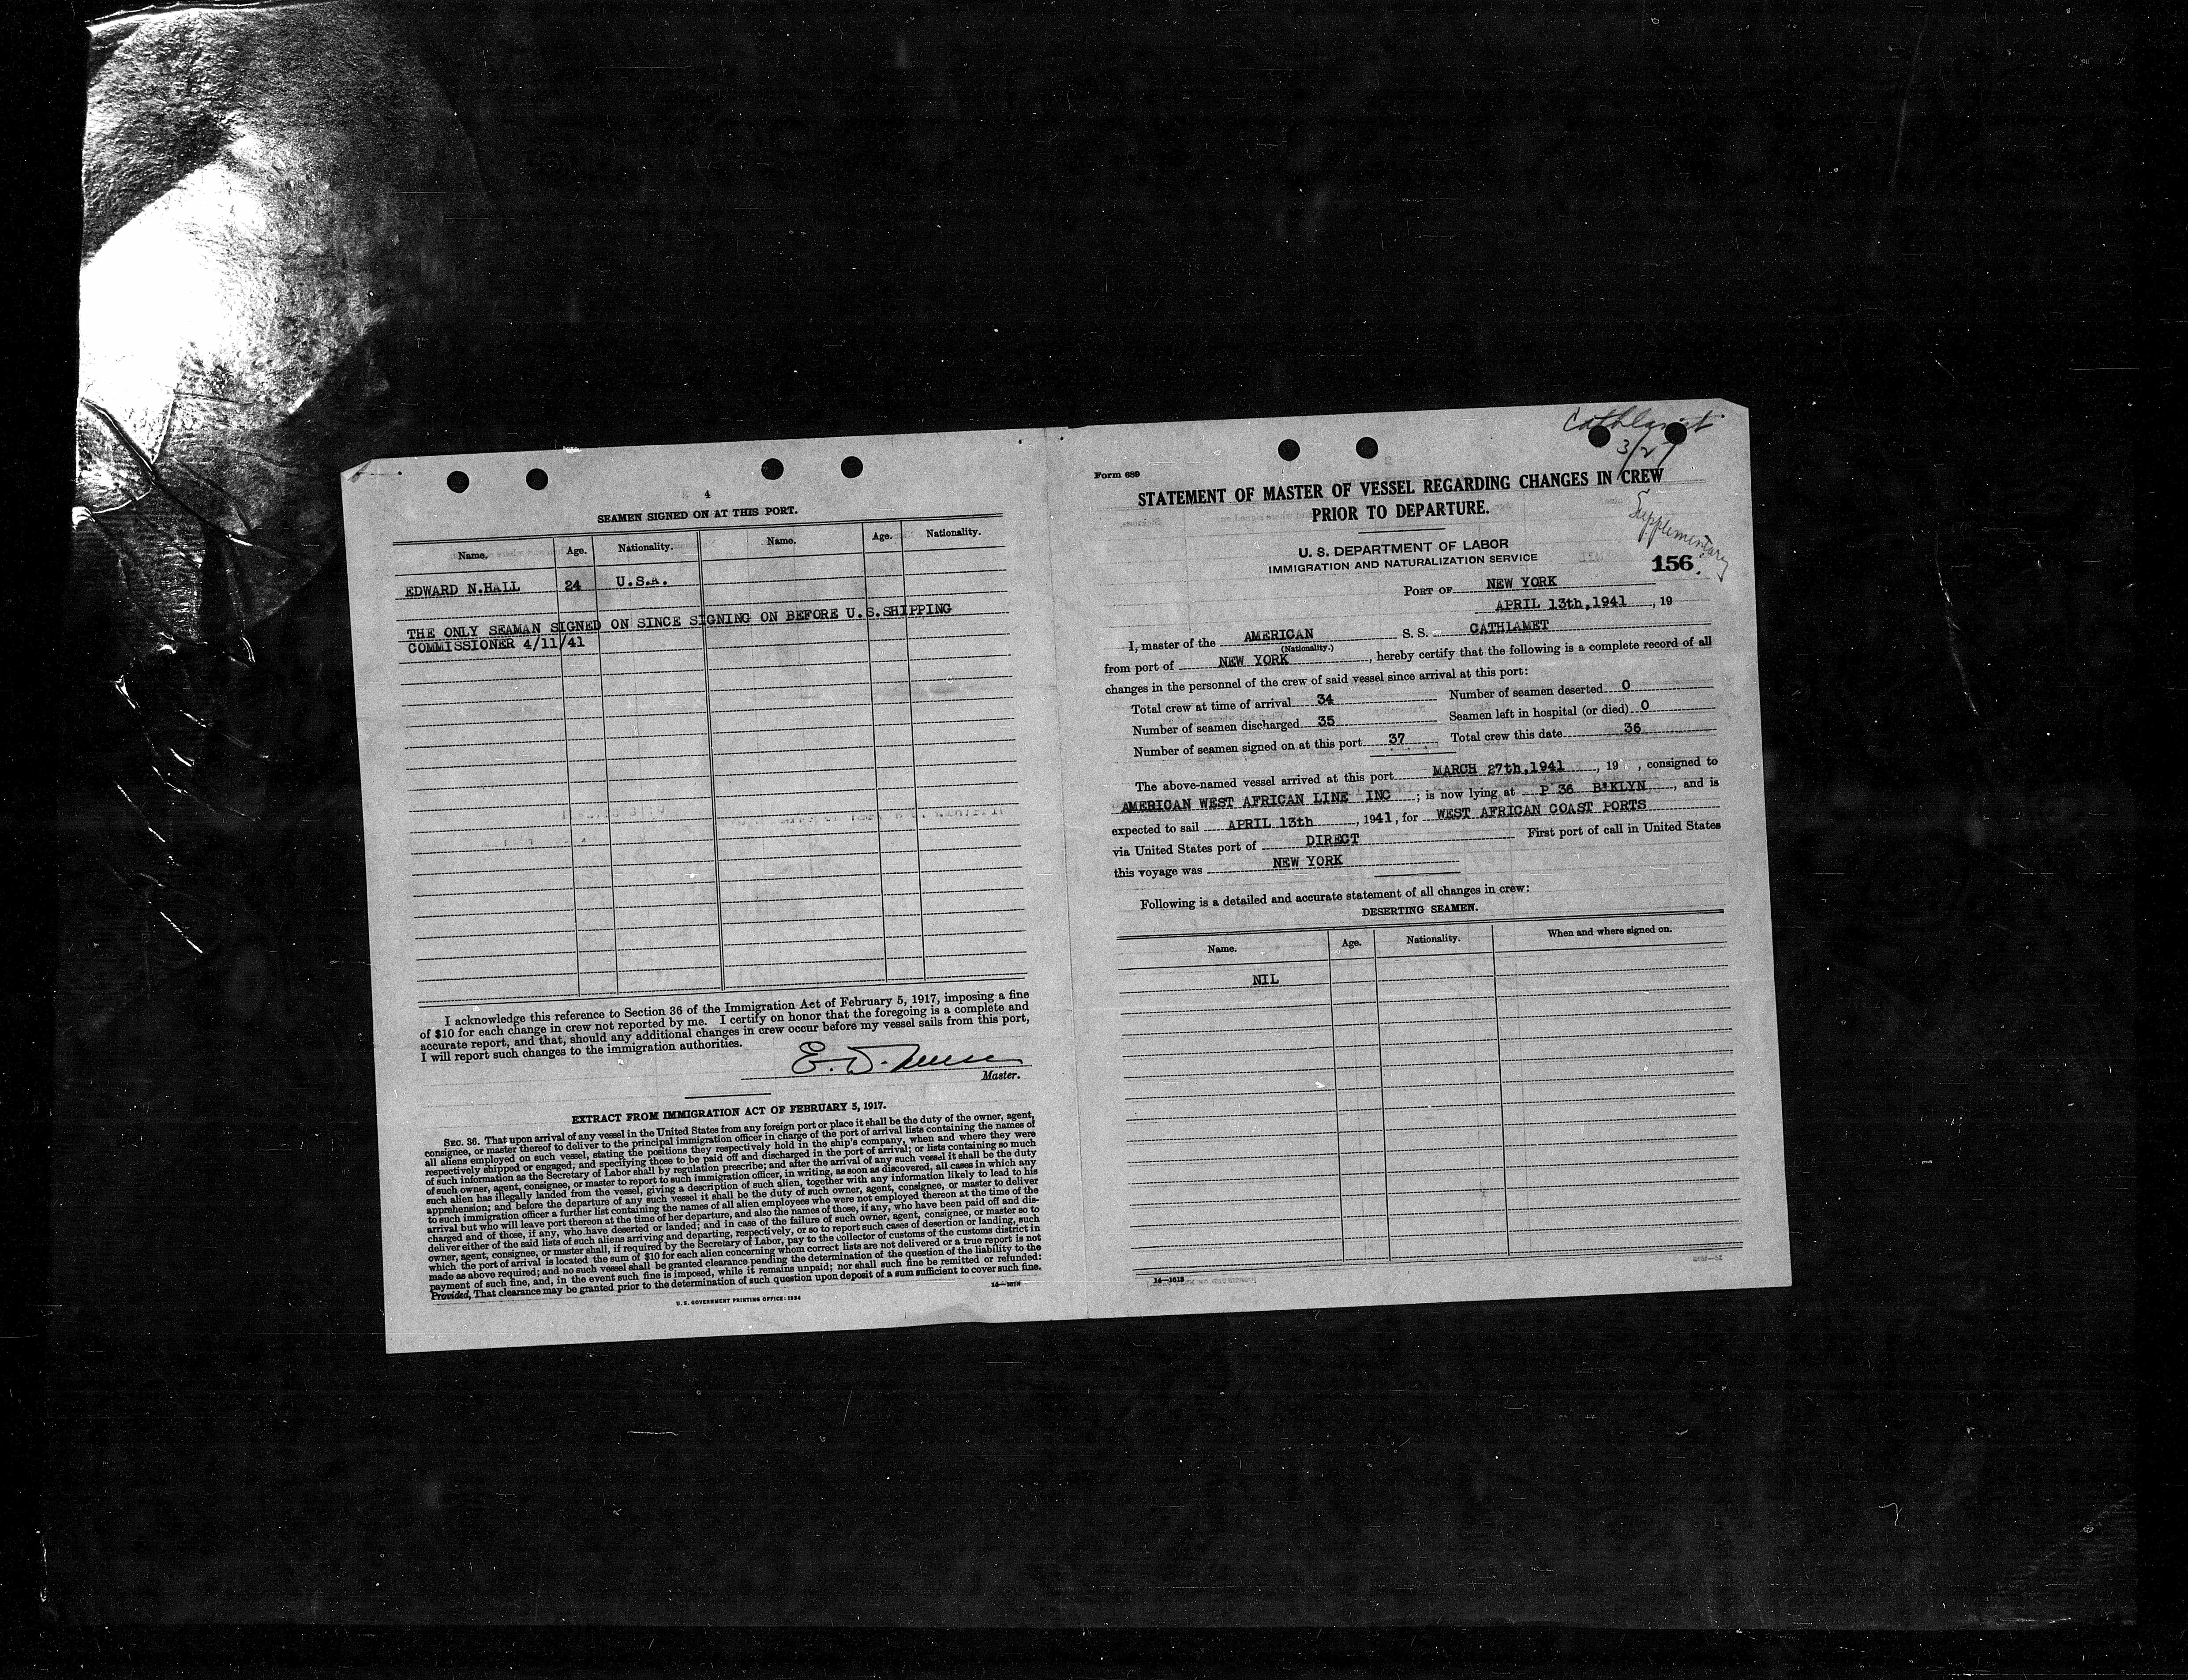 4
SEAMEN SIGNED ON AT THIS PORT.
Name. Age. Nationality. Name. Age. Nationality.
EDWARD N.HALL 24 U.S.A.
THE ONLY SEAMAN SIGNED ON SINCE SIGNING ON BEFORE U.S.SHIPPING
COMMISSIONER 4/11/41
I acknowledge this reference to Section 36 of the Immigration Act of February 5, 1917, imposing a fine
of $10 for each change in crew not reported by me. I certify on honor that the foregoing is a complete and
accurate report, and that, should any additional changes in crew occur before my vessel sails from this port,
I will report such changes to the immigration authorities.
E. D.
Master.
EXTRACT FROM IMMIGRATION ACT OF FEBRUARY 5, 1917.
SEC. 36. That upon arrival of any vessel in the United States from any foreign port or place it shall be the duty of the owner, agent,
consignee, or master thereof to deliver to the principal immigration officer in charge of the port of arrival lists containing the names of
all aliens employed on such vessel, stating the positions they respectively hold in the ship's company, when and where they were
respectively shipped or engaged, and specifying those to be paid off and discharged in the port of arrival; or lists containing so much
of such information as the Secretary of Labor shall by regulation prescribe; and after the arrival of any such vessel it shall be the duty
of such owner, agent, consignee, or master to report to such immigration officer, in writing, as soon as discovered, all cases in which any
such alien has illegally landed from the vessel, giving a description of such alien, together with any information likely to lead to his
apprehension; and before the departure of any such vessel it shall be the duty of such owner, agent, consignee, or master to deliver
to such immigration officer a further list containing the names of all alien employees who were not employed thereon at the time of the
arrival but who will leave port thereon at the time of her departure, and also the names of those, if any, who have been paid off and dis-
charged and of those, if any, who have deserted or landed; and in case of the failure of such owner, agent, consignee, or master so to
deliver either of the said lists of such aliens arriving and departing, respectively, or so to report such cases of desertion or landing, such
owner, agent, consignee, or master shall, if required by the Secretary of Labor, pay to the collector of customs of the customs district in
which the port of arrival is located the sum of $10 for each alien concerning whom correct lists are not delivered or a true report is not
made as above required; and no such vessel shall be granted clearance pending the determination of the question of the liability to the
payment of such fine, and, in the event such fine is imposed, while it remains unpaid; nor shall such fine be remitted or refunded:
Provided, That clearance may be granted prior to the determination of such question upon deposit of a sum sufficient to cover such fine.
U. S. GOVERNMENT PRINTING OFFICE: 1934
16—1618
Cathlamet
3/27
Form 689
STATEMENT OF MASTER OF VESSEL REGARDING CHANGES IN CREW
PRIOR TO DEPARTURE.
Supplementary
U. S. DEPARTMENT OF LABOR
IMMIGRATION AND NATURALIZATION SERVICE
156.
PORT OF NEW YORK
APRIL 13th,1941, 19
I, master of the AMERICAN S. S. CATHLAMET
(Nationality.)
from port of NEW YORK, hereby certify that the following is a complete record of all
changes in the personnel of the crew of said vessel since arrival at this port:
Total crew at time of arrival 34 Number of seamen deserted 0
Number of seamen discharged 35 Seamen left in hospital (or died) 0
Number of seamen signed on at this port 37 Total crew this date 36
The above-named vessel arrived at this port MARCH 27th,1941, 19 , consigned to
AMERICAN WEST AFRICAN LINE INC; is now lying at P 36 B'KLYN, and is
expected to sail APRIL 13th, 1941, for WEST AFRICAN COAST PORTS
via United States port of DIRECT First port of call in United States
this voyage was NEW YORK
Following is a detailed and accurate statement of all changes in crew:
DESERTING SEAMEN.
Name. Age. Nationality. When and where signed on.
NIL
16—1618